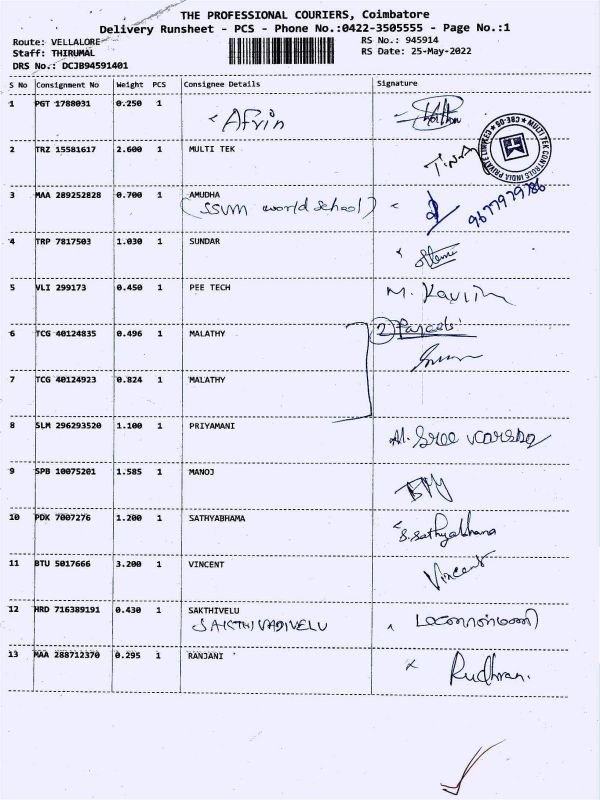 THE PROFESSIONAL COURIERS, Coimbatore
Delivery Runsheet - PCS - Phone No.:0422-3505555 - Page No.:1
Route: VELLALORE RS No.: 945914
Staff: THIRUMAL RS Date: 25-May-2022
DRS No.: DCJB94591401
S No Consignment No Weight PCS Consignee Details Signature
1 PGT 1788031 0.250 1 Afrin
2 TRZ 15581617 2.600 1 MULTI TEK
MULTI TEK CONTROLS INDIA PRIVATE LIMITED ★ CBE-08 ★
3 MAA 289252828 0.700 1 AMUDHA
(SSVM world school) 9677979786
4 TRP 7817503 1.030 1 SUNDAR
5 VLI 299173 0.450 1 PEE TECH M. Kavin
2 Parcels
6 TCG 40124835 0.496 1 MALATHY
7 TCG 40124923 0.824 1 MALATHY
8 SLM 296293520 1.100 1 PRIYAMANI
9 SPB 10075201 1.585 1 MANOJ
10 PDK 7007276 1.200 1 SATHYABHAMA S. Sathyabhama
11 BTU 5017666 3.200 1 VINCENT Vincent
12 HRD 716389191 0.430 1 SAKTHIVELU
SAKTHIVADIVELU
13 MAA 288712370 0.295 1 RANJANI Rudhran.